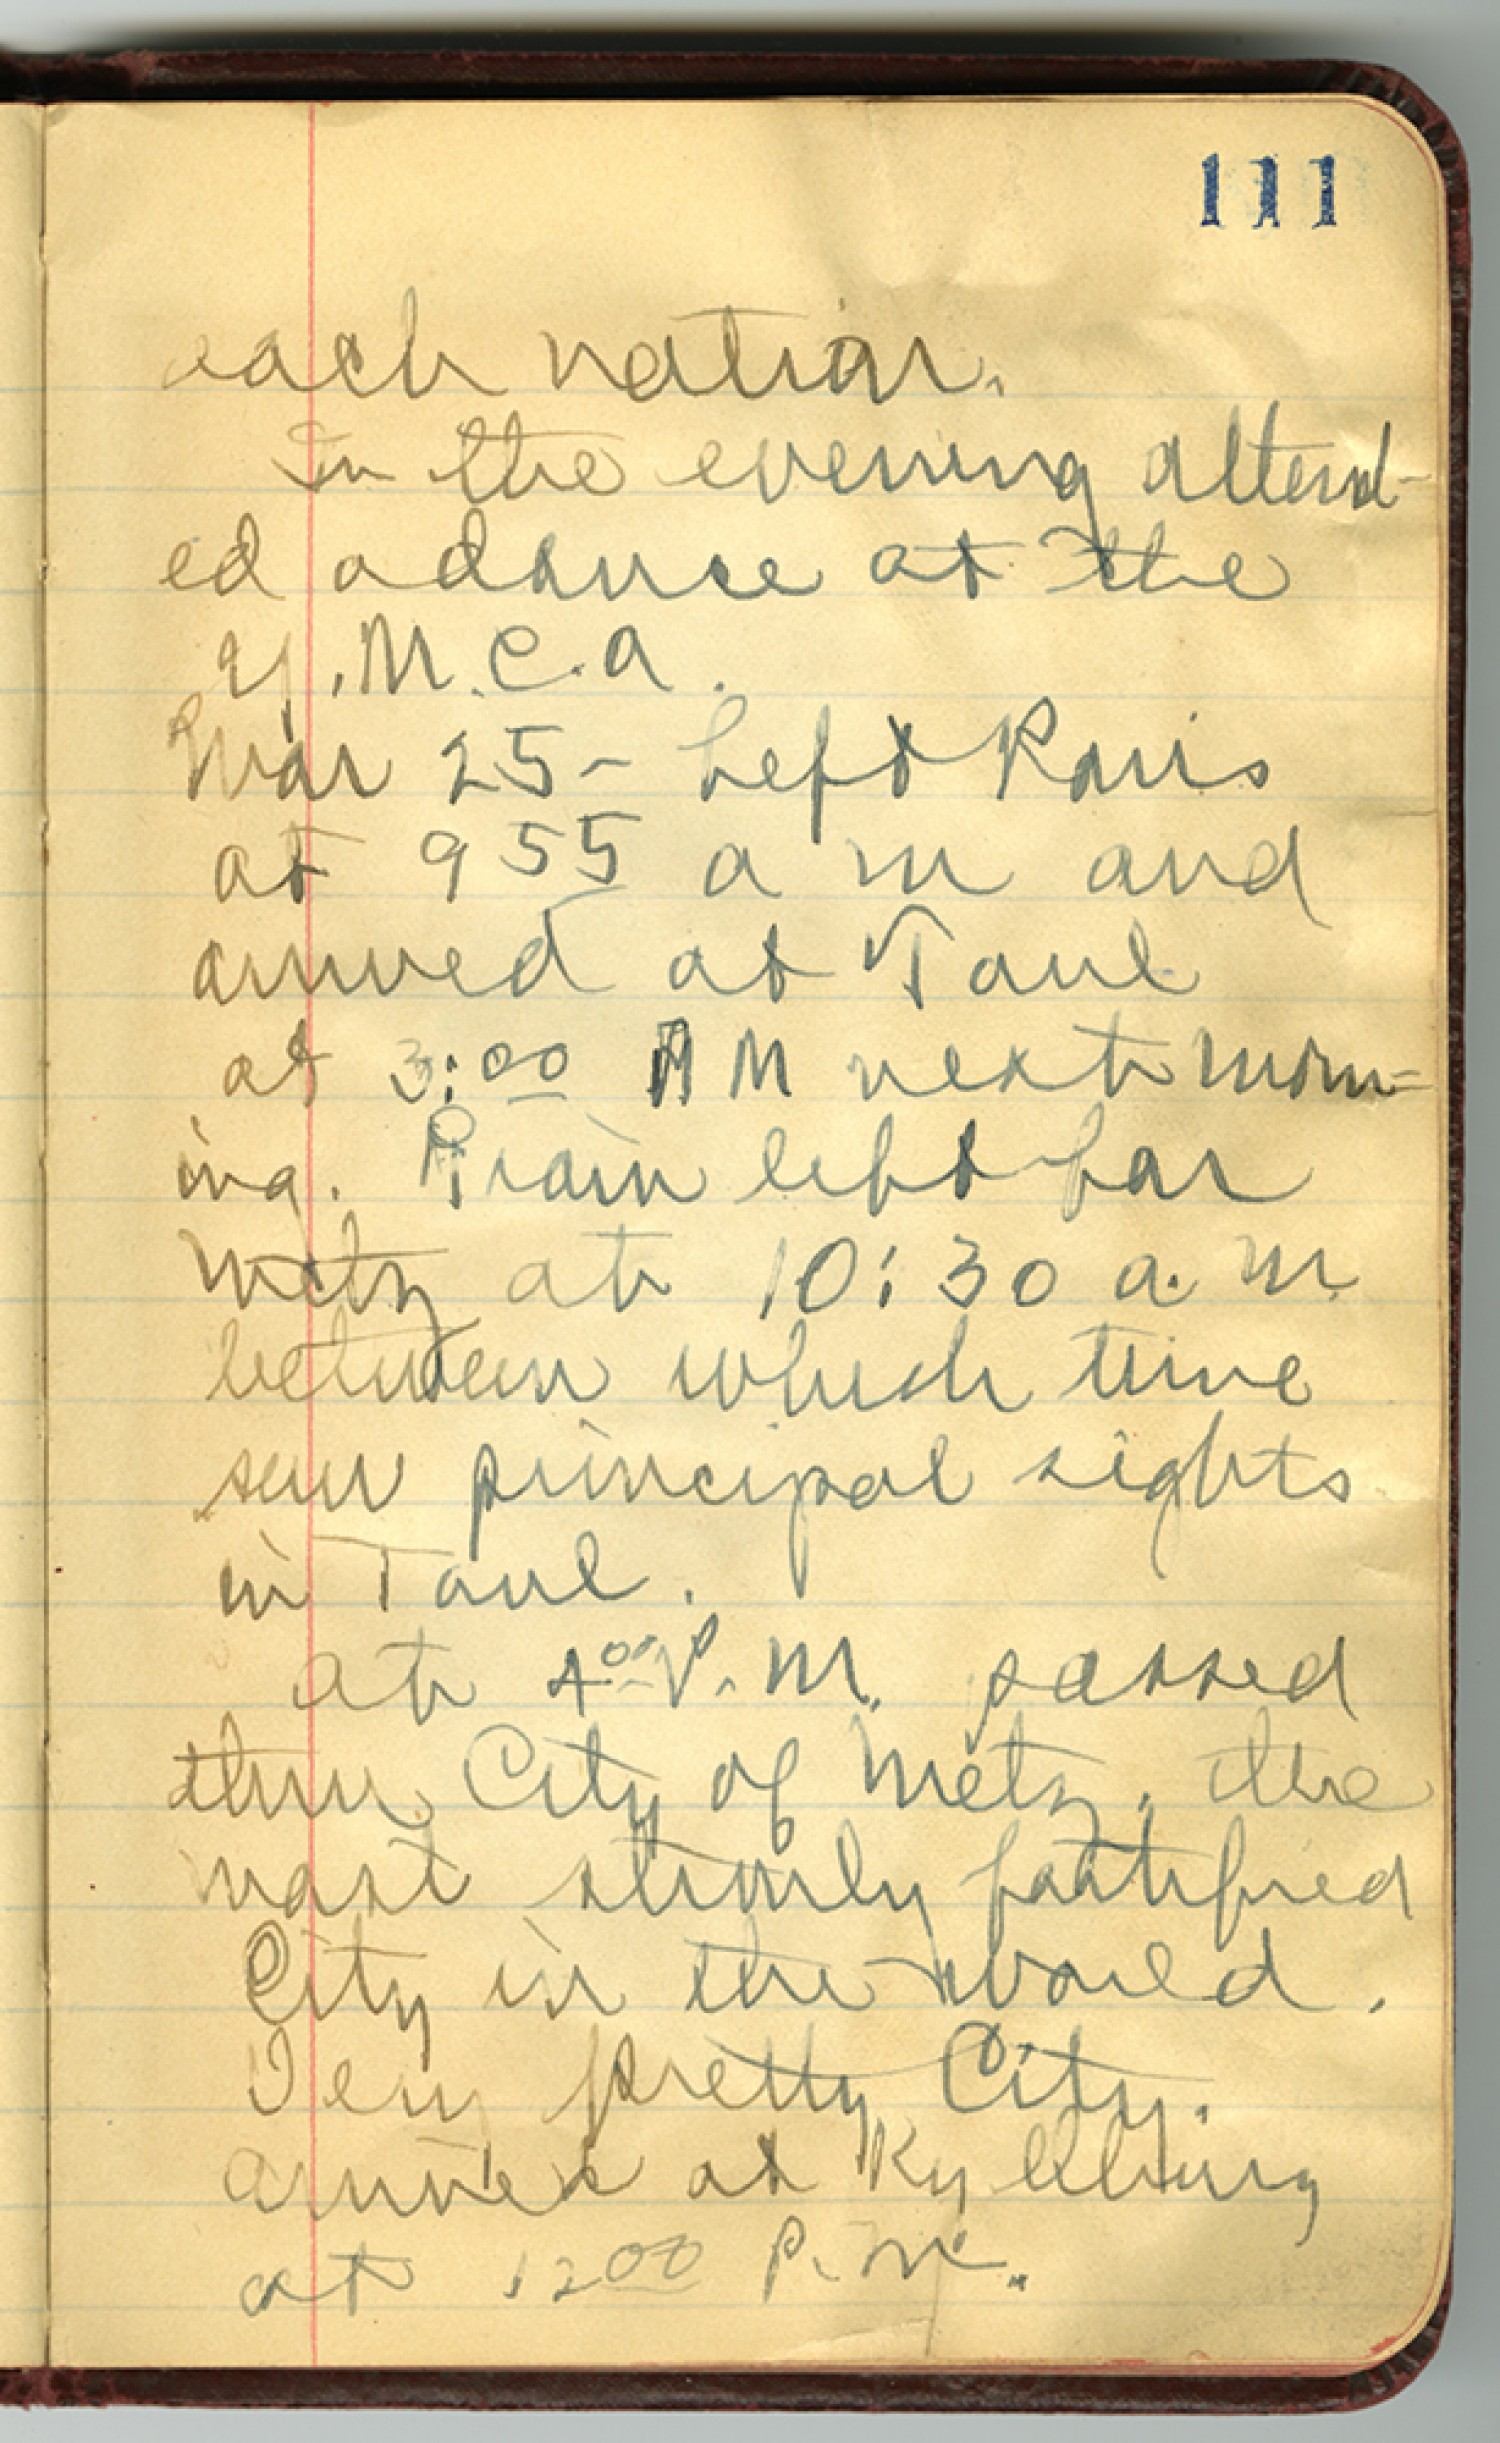 111
each nation.
In the evening attend-
ed a dance at the
Y.M.C.A.
Mar 25 - Left Paris
at 9 55 a m and
arrived at Toul
at 3:00 A M next morn-
ing. Train left for
Metz at 10:30 a. m.
between which time
saw principal sights
in Toul.
at 4 00 P. M. passed
thru City of Metz, the
most stronly fortified
City in the world.
Very pretty City.
arrived at Kyllburg
at 12 00 P. M.